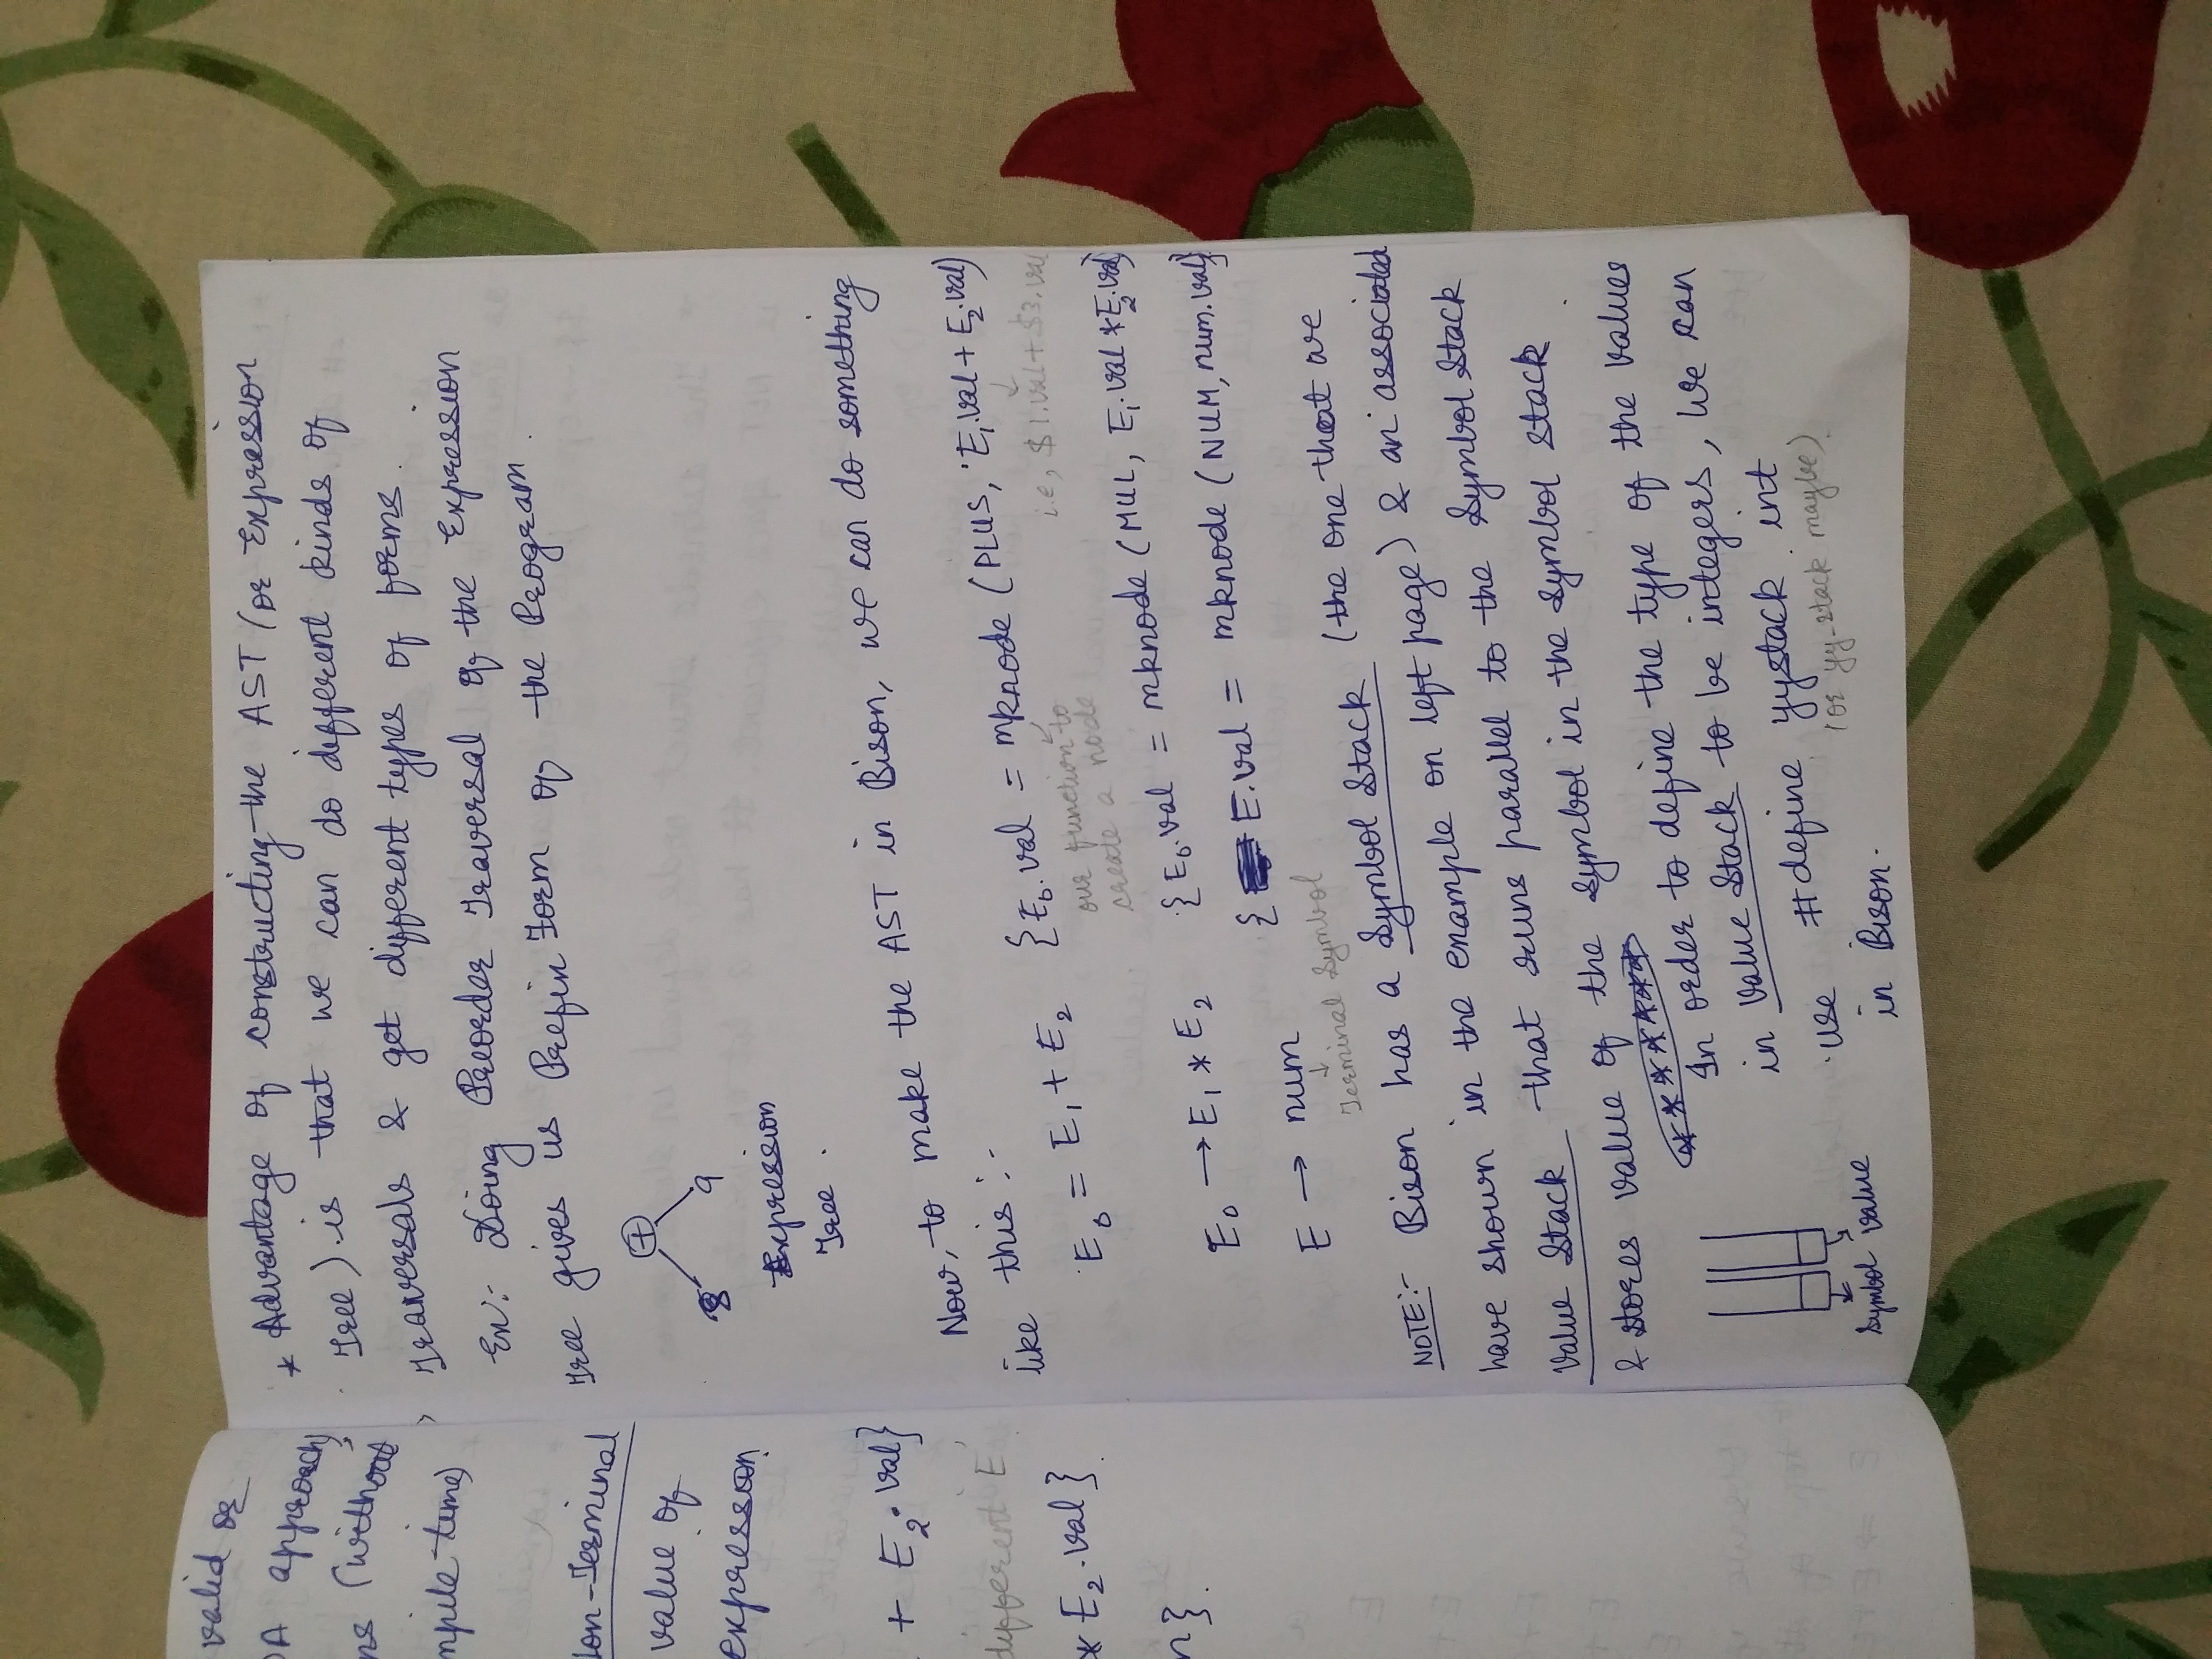 valid or
DA approach)
ns (without
mpile time)
Non-Terminal
value of
expression.
+ E2.val}
different E
* E2.val}.
n}.
* Advantage of constructing the AST (or Expression
Tree) is that we can do different kinds of
Traversals & get different types of forms.
Ex:- Doing Preorder Traversal of the Expression
Tree gives us Prefix Form of the Program.
+
8 9
Expression
Tree.
Now, to make the AST in Bison, we can do something
like this :-
E0 = E1 + E2 {E0.val = mknode (PLUS, E1.val + E2.val)
our function to
create a node
i.e, $1.val + $3.val
E0 → E1 * E2 {E0.val = mknode (MUL, E1.val * E2.val)
E → num { E.val = mknode (NUM, num.val)}
Terminal Symbol
NOTE:- Bison has a Symbol Stack (the one that are
have shown in the example on left page) & an associated
Value Stack that runs parallel to the Symbol Stack
& stores value of the symbol in the symbol stack.
*******
In order to define the type of the values
in Value Stack to be integers, we can
use #define yystack int
(or yy-stack maybe)
in Bison.
Symbol Value